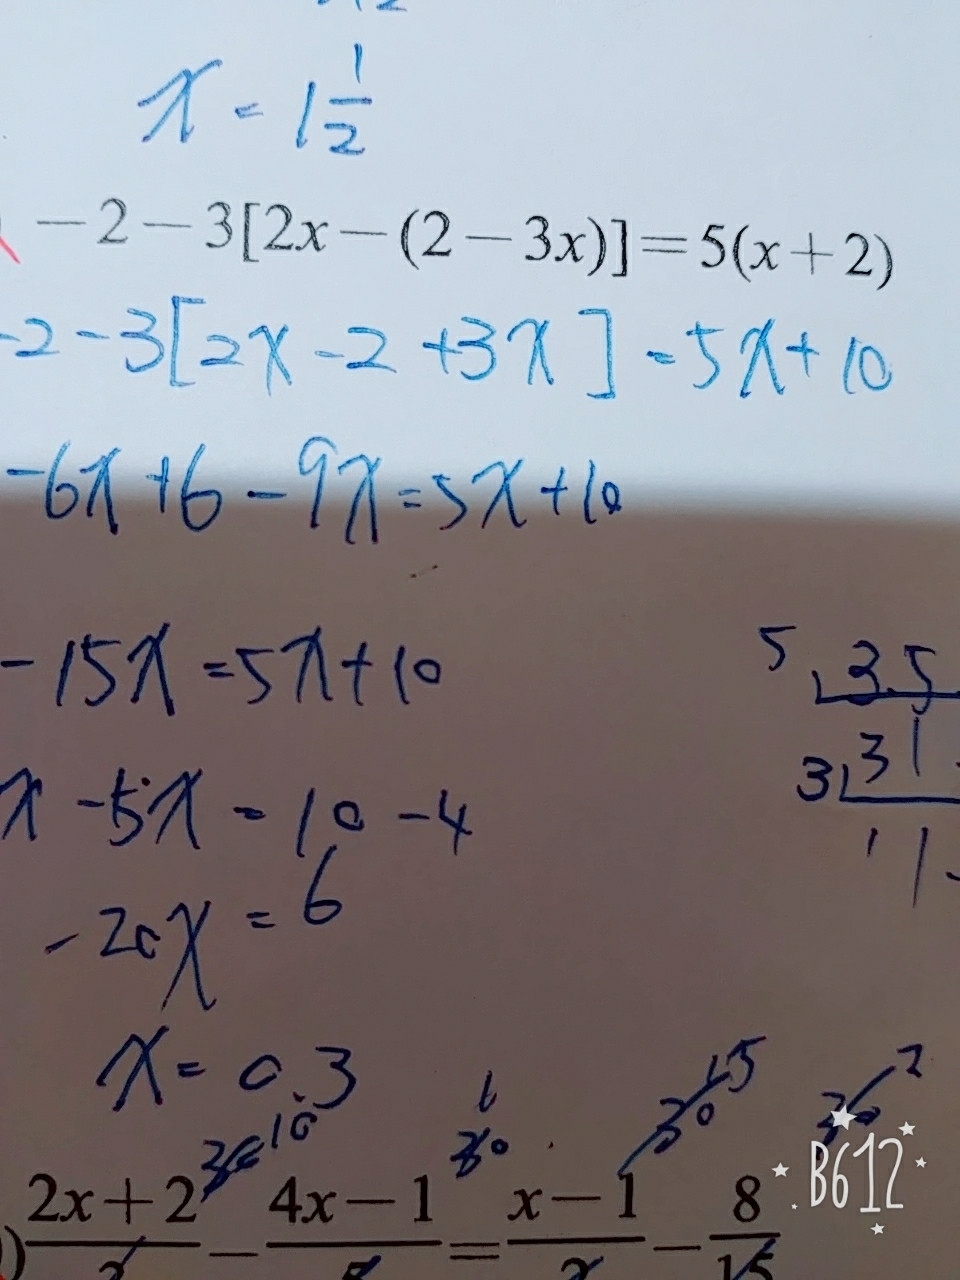 x = 1 1/2
-2-3[2x-(2-3x)]=5(x+2)
-2-3[2x-2+3x]=5x+10
-6x+6-9x=5x+10
-15x=5x+10
5 35
x-5x=10-4
3 31
11
-20x=6
x=0.3
10 1 15 2
30 30 30 30
2x+2 / - 4x-1 / 5 = x-1 / 2 - 8 / 15
B612